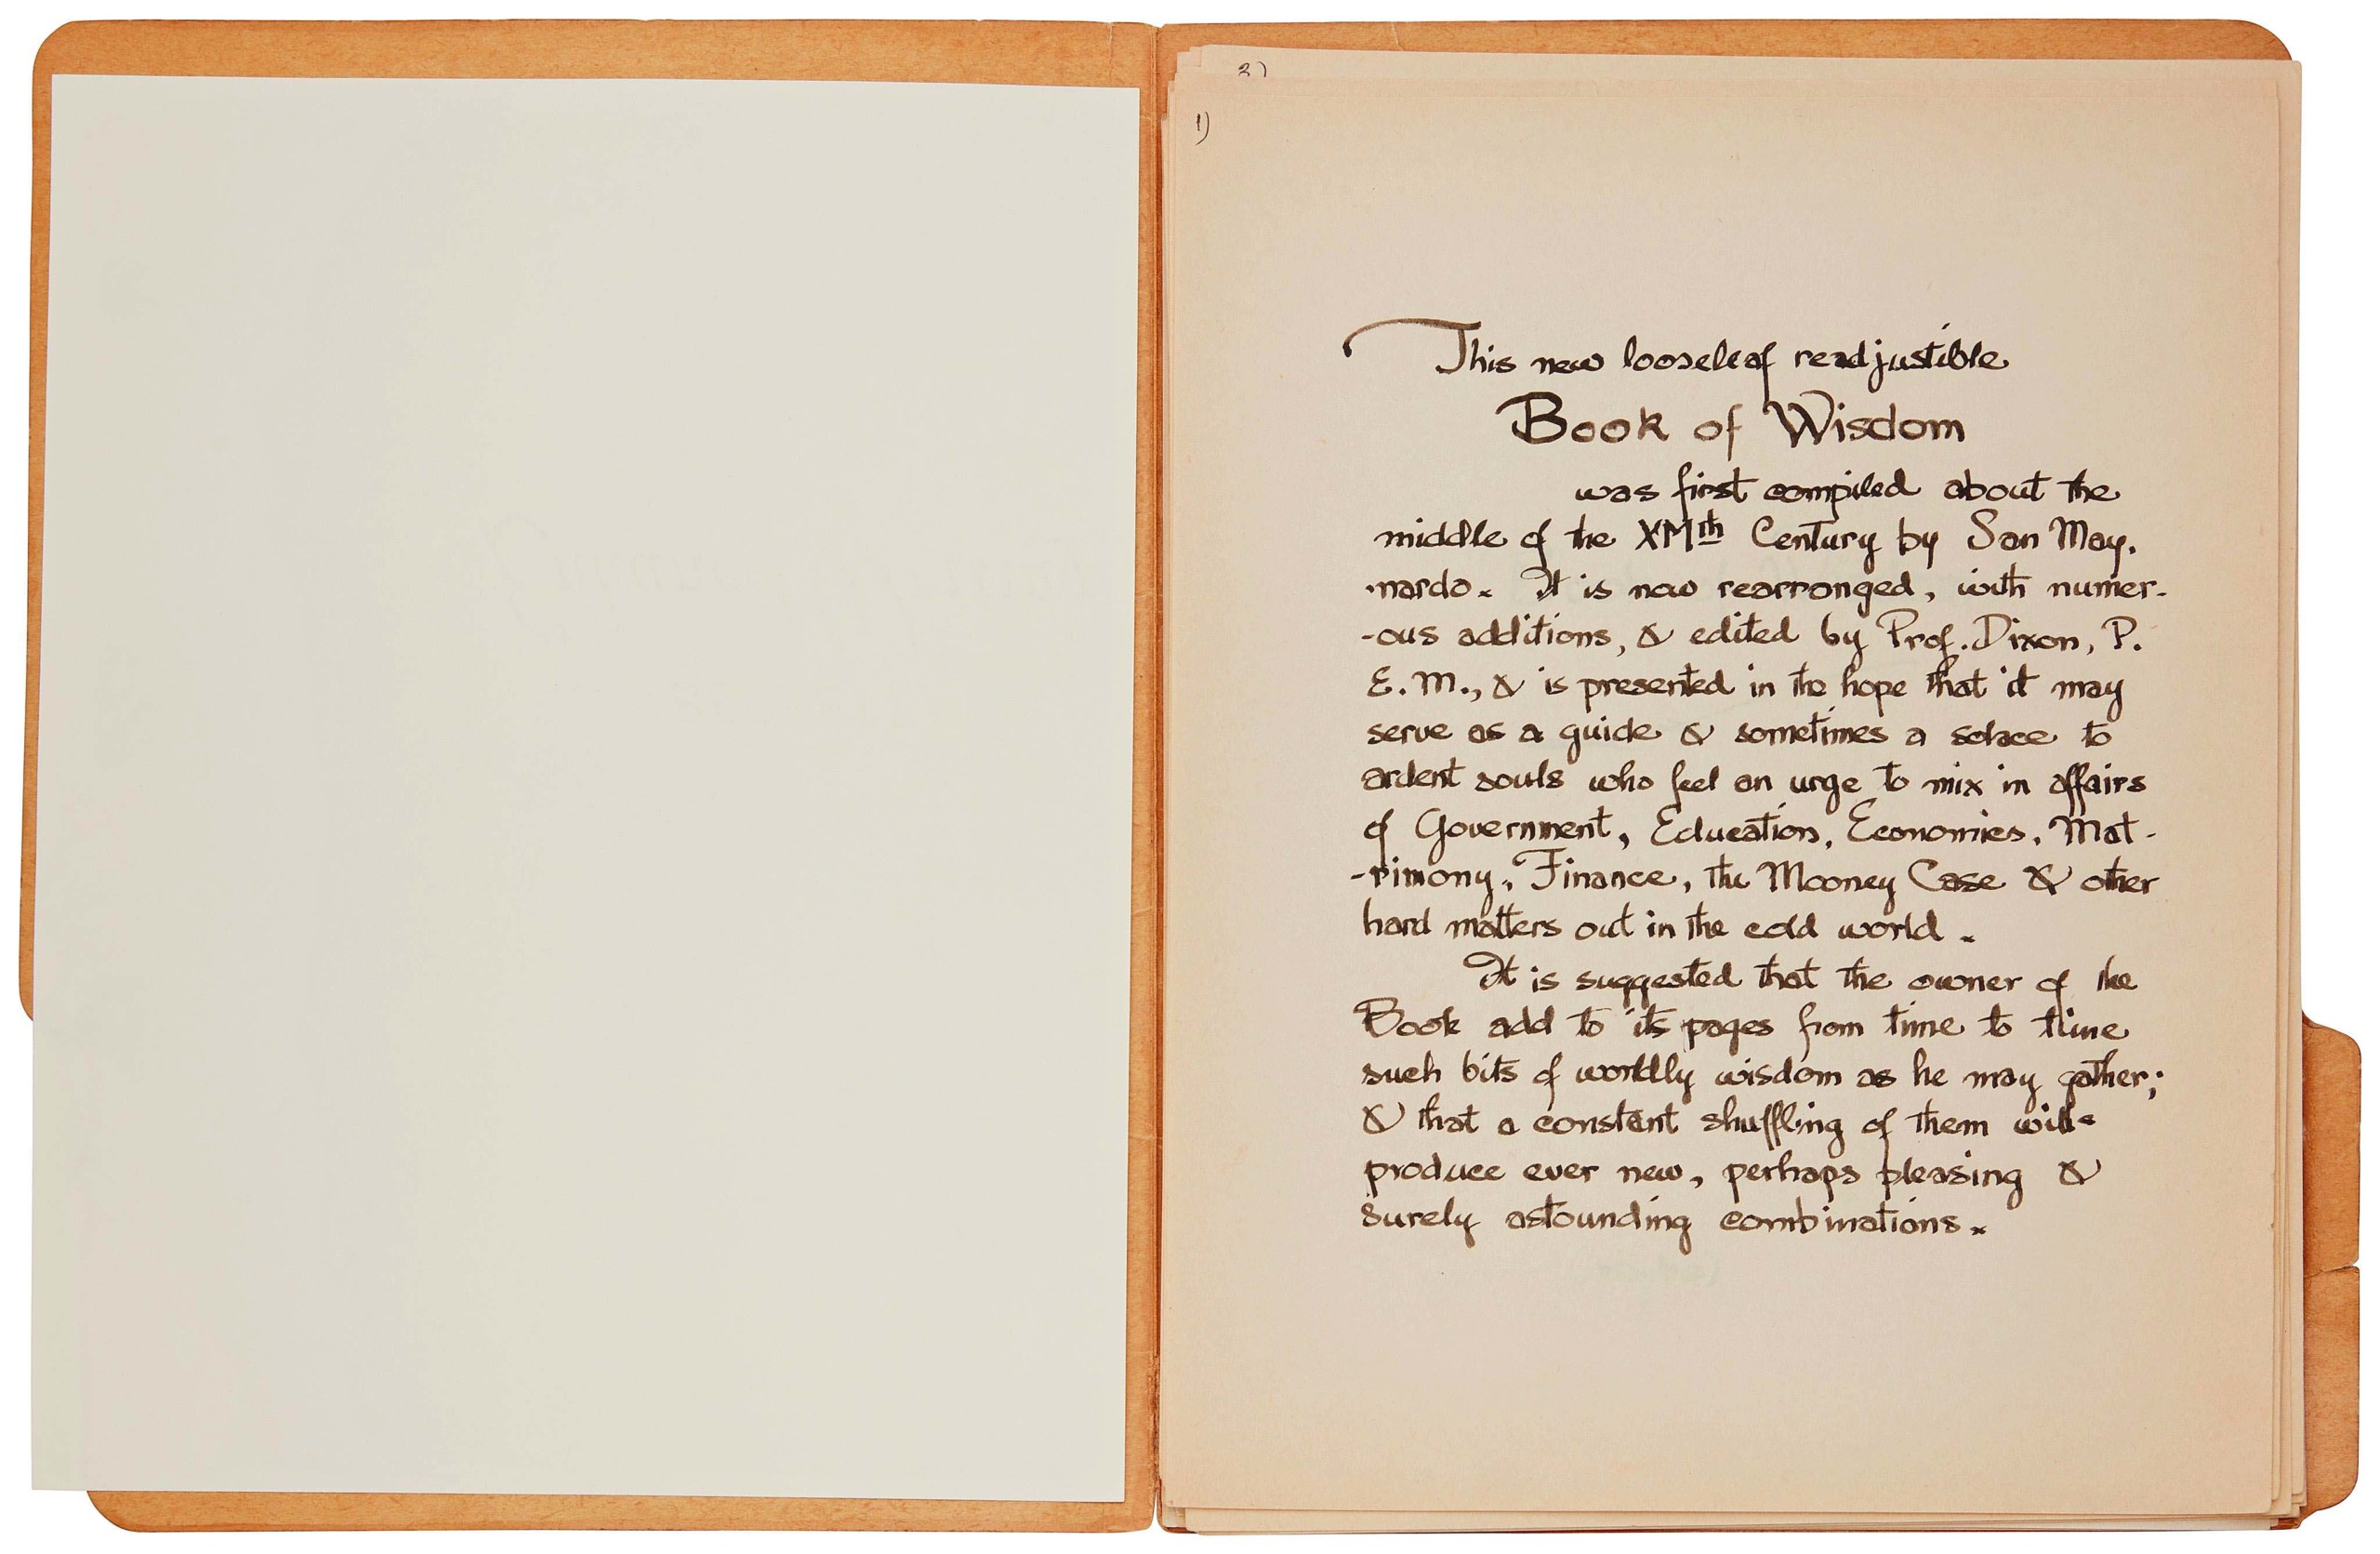 2)
1)
This new looseleaf readjustible
Book of Wisdom
was first compiled about the
middle of the XMth Century by San May.
.nardo. It is now rearranged, with numer-
-ous additions, & edited by Prof. Dixon, P.
E. M., & is presented in the hope that it may
serve as a guide & sometimes a solace to
ardent souls who feel an urge to mix in affairs
of Government, Education, Economies, Mat-
-rimony, Finance, the Mooney Case & other
hard matters out in the cold world.
It is suggested that the owner of the
Book add to its pages from time to time
such bits of worldly wisdom as he may gather;
& that a constant shuffling of them will
produce ever new, perhaps pleasing &
surely astounding combinations.